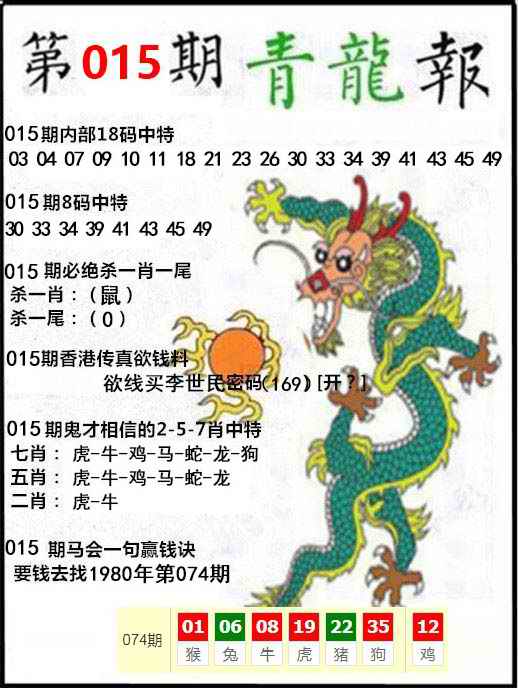 第015期青龍報
015期内部18码中特
03 04 07 09 10 11 18 21 23 26 30 33 34 39 41 43 45 49
015期8码中特
30 33 34 39 41 43 45 49
015 期必绝杀一肖一尾
杀一肖：（鼠）
杀一尾：（0）
015期香港传真欲钱料
欲线买李世民密码(169) [开?]
015期鬼才相信的2-5-7肖中特
七肖： 虎-牛-鸡-马-蛇-龙-狗
五肖： 虎-牛-鸡-马-蛇-龙
二肖： 虎-牛
015 期马会一句赢钱诀
要钱去找1980年第074期
074期 01 06 08 19 22 35 12
猴 兔 牛 虎 猪 狗 鸡